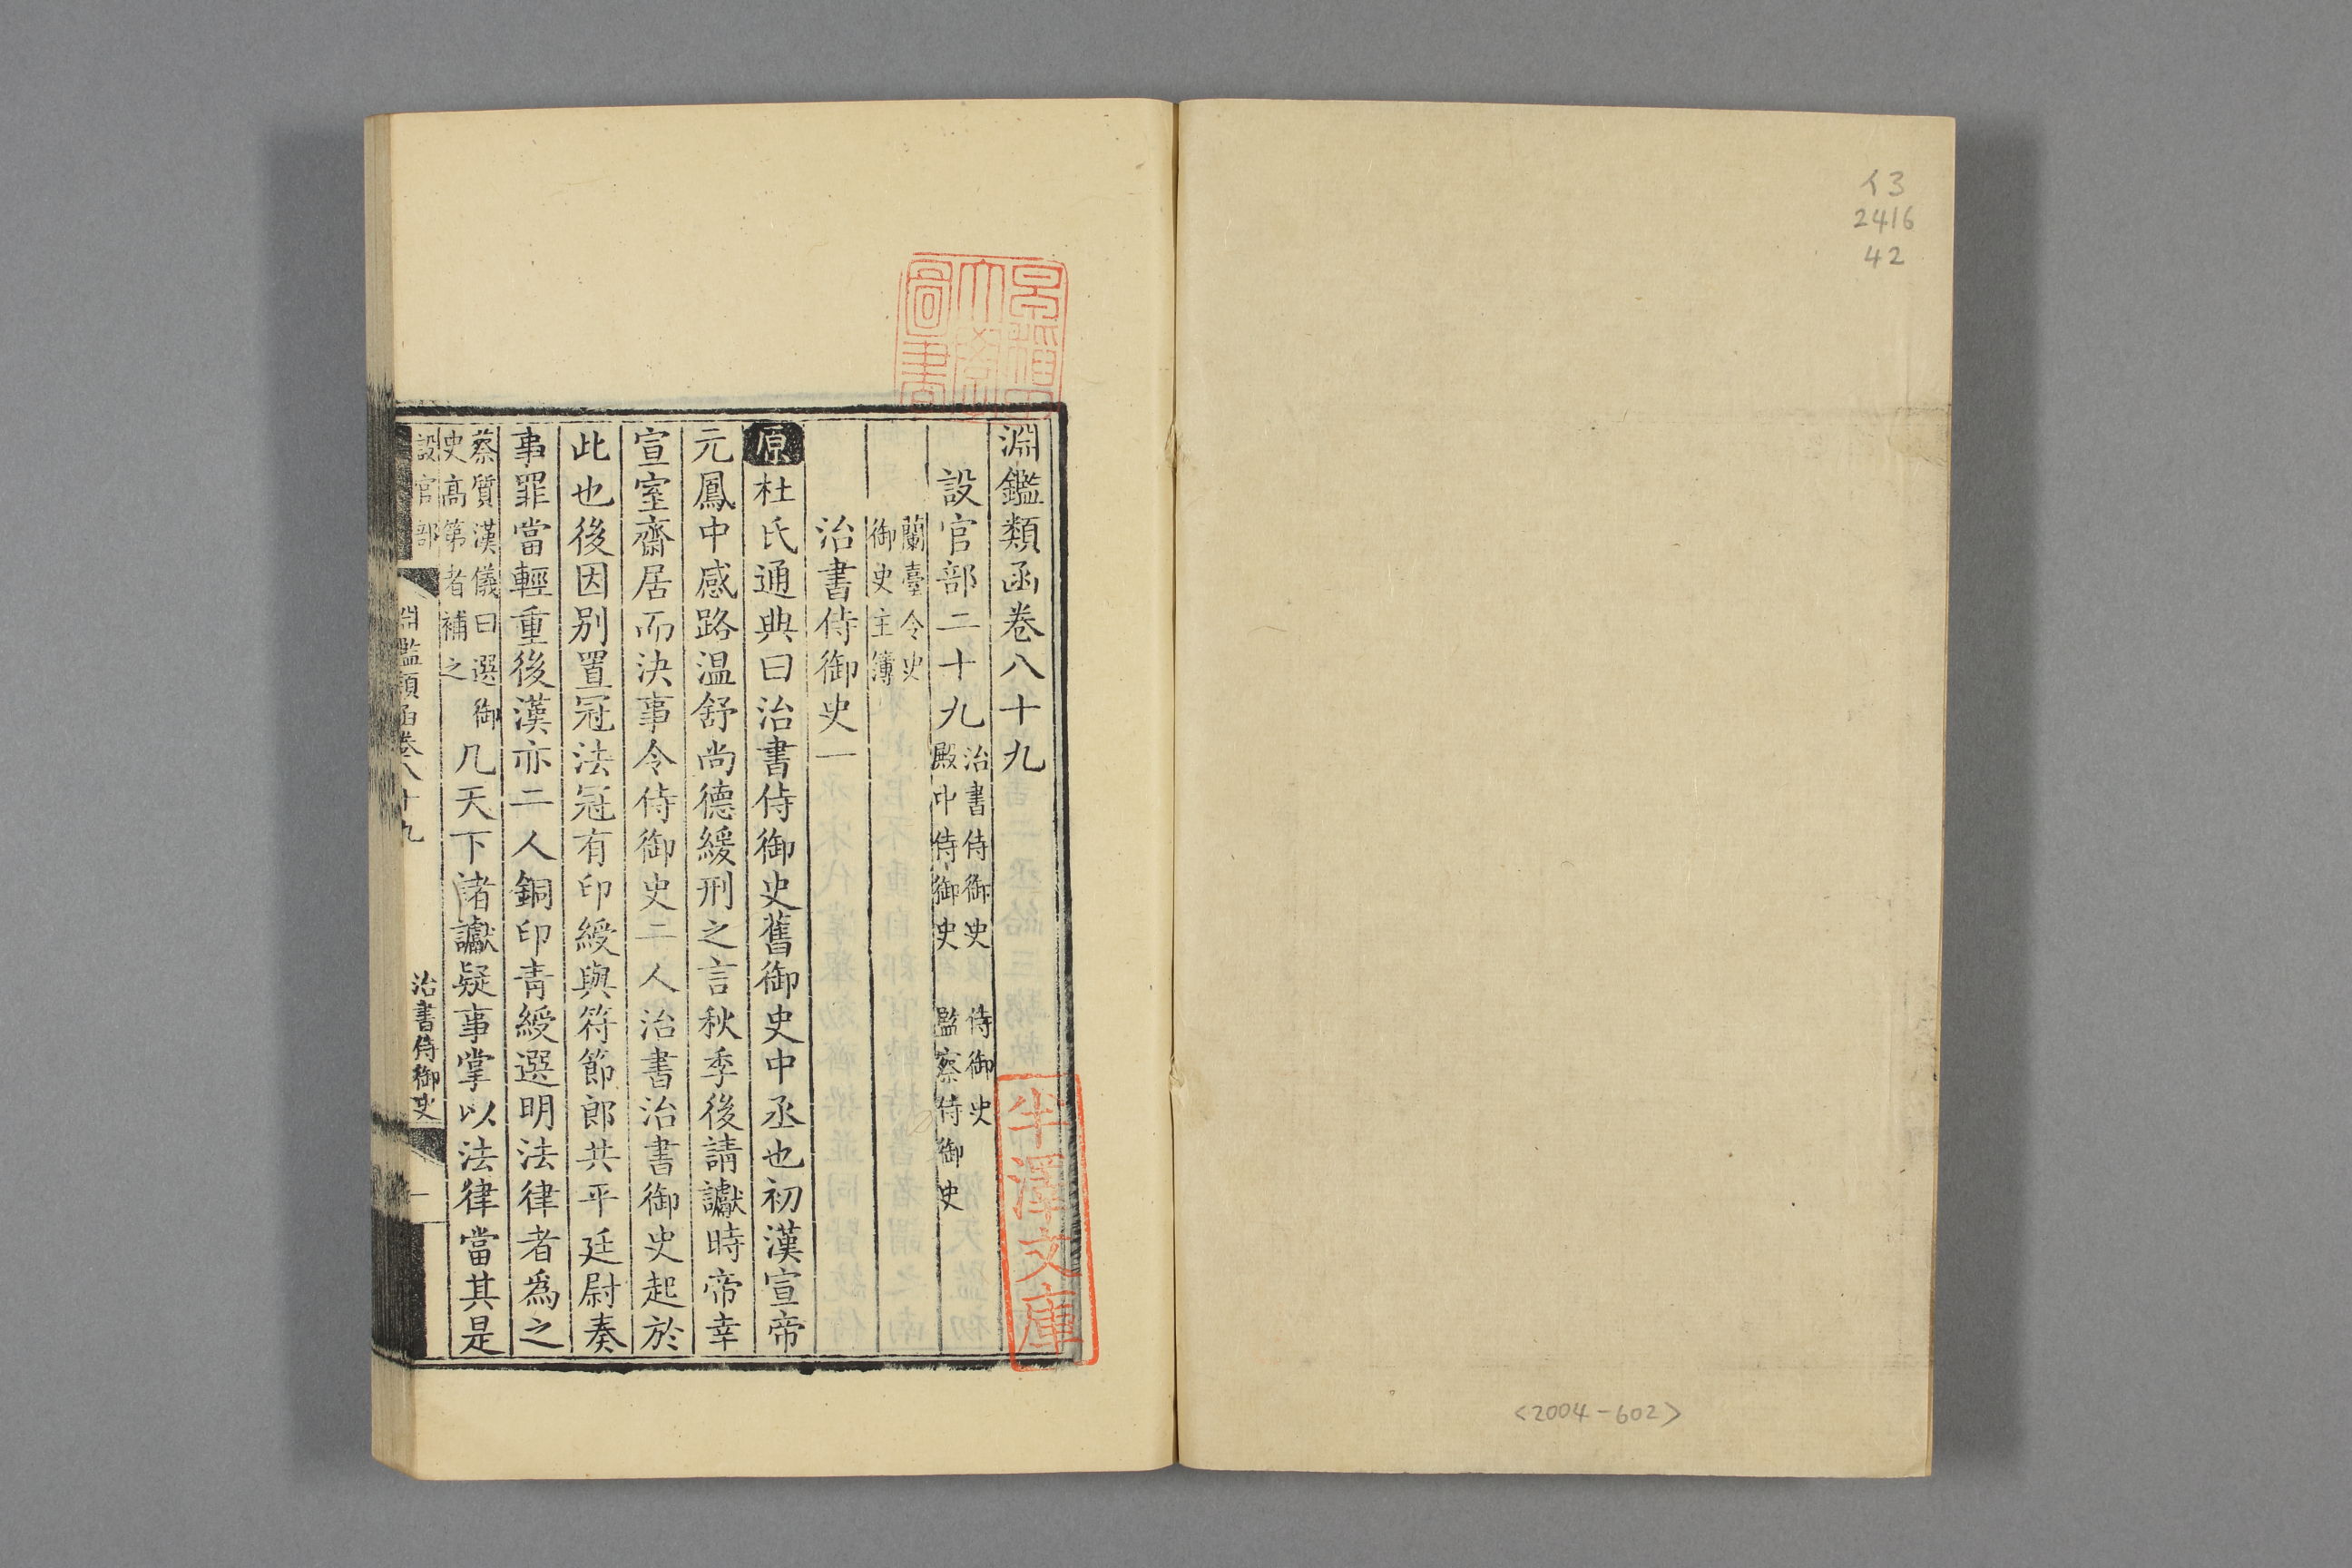 イ3
2416
42
<2004-602>
早稻田大學圖書
半澤文庫
淵鑑類函卷八十九
設官部二十九
治書侍御史 侍御史
殿中侍御史 監察侍御史
蘭臺令史
御史主簿
治書侍御史一
原杜氏通典曰治書侍御史舊御史中丞也初漢宣帝
元鳳中感路温舒尚德緩刑之言秋季後請讞時帝幸
宣室齋居而決事令侍御史二人治書治書御史起於
此也後因别置冠法冠有印綬與符節郎共平廷尉奏
事罪當輕重後漢亦二人銅印青綬選明法律者爲之
蔡質漢儀曰選御
史高第者補之
凡天下諸讞疑事掌以法律當其是
設官部
淵鑑類函卷八十九
治書侍御史
一